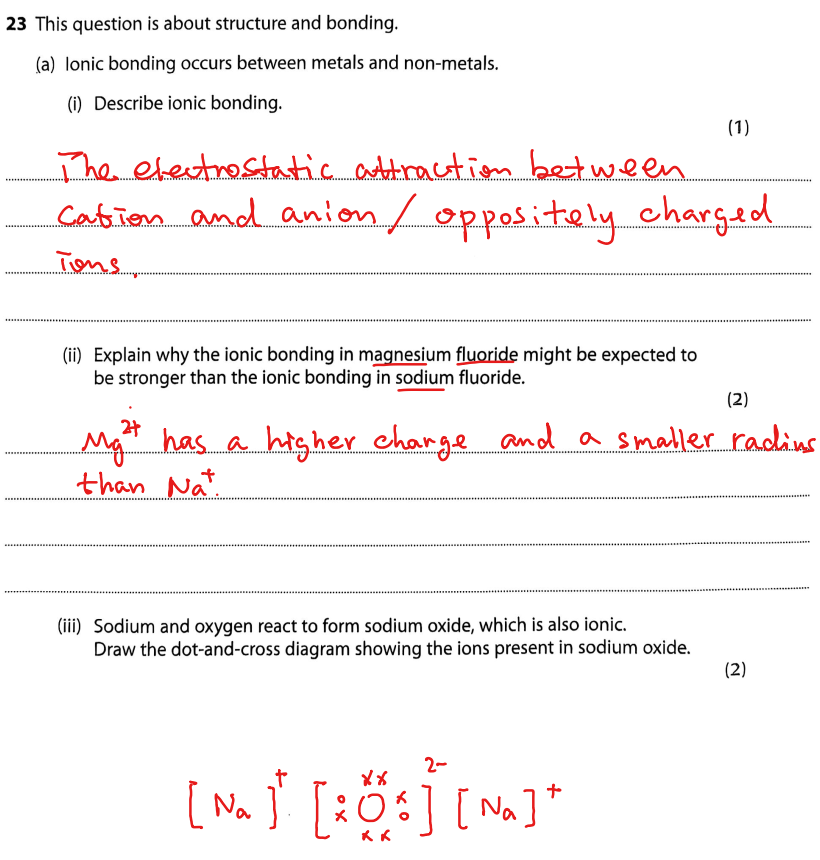 23 This question is about structure and bonding.
(a) Ionic bonding occurs between metals and non-metals.
(i) Describe ionic bonding.
(1)
The electrostatic attraction between
cation and anion / oppositely charged
ions.
(ii) Explain why the ionic bonding in magnesium fluoride might be expected to
be stronger than the ionic bonding in sodium fluoride.
(2)
Mg²⁺ has a higher charge and a smaller radius
than Na⁺.
(iii) Sodium and oxygen react to form sodium oxide, which is also ionic.
Draw the dot-and-cross diagram showing the ions present in sodium oxide.
(2)
[Na]⁺ [O]²⁻ [Na]⁺